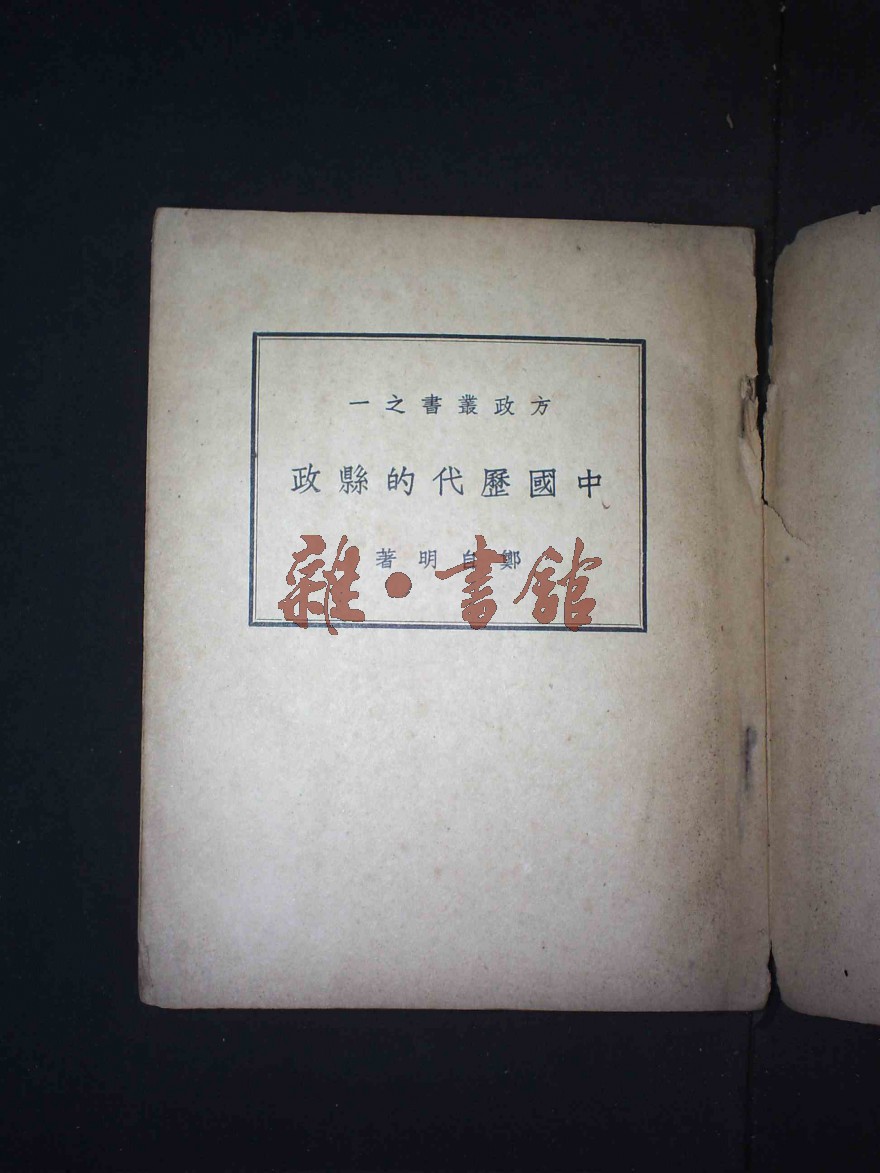 方政叢書之一
中國歷代的縣政
鄭自明著
雜·書館